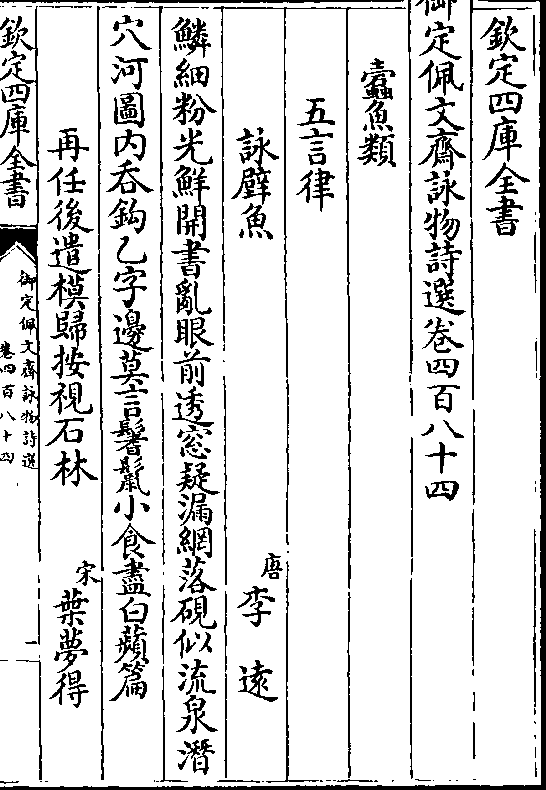 欽定四庫全書
御定佩文齋詠物詩選卷四百八十四
蠹魚類
五言律
詠壁魚　唐李遠
鱗細粉光鮮開書亂眼前透窓疑漏網落硯似流泉潛
穴河圖内吞鈎乙字邊莫言鬐鬣小食盡白蘋篇
再任後遣模歸按視石林　宋葉夢得
欽定四庫全書
御定佩文齋詠物詩選
卷四百八十四
一